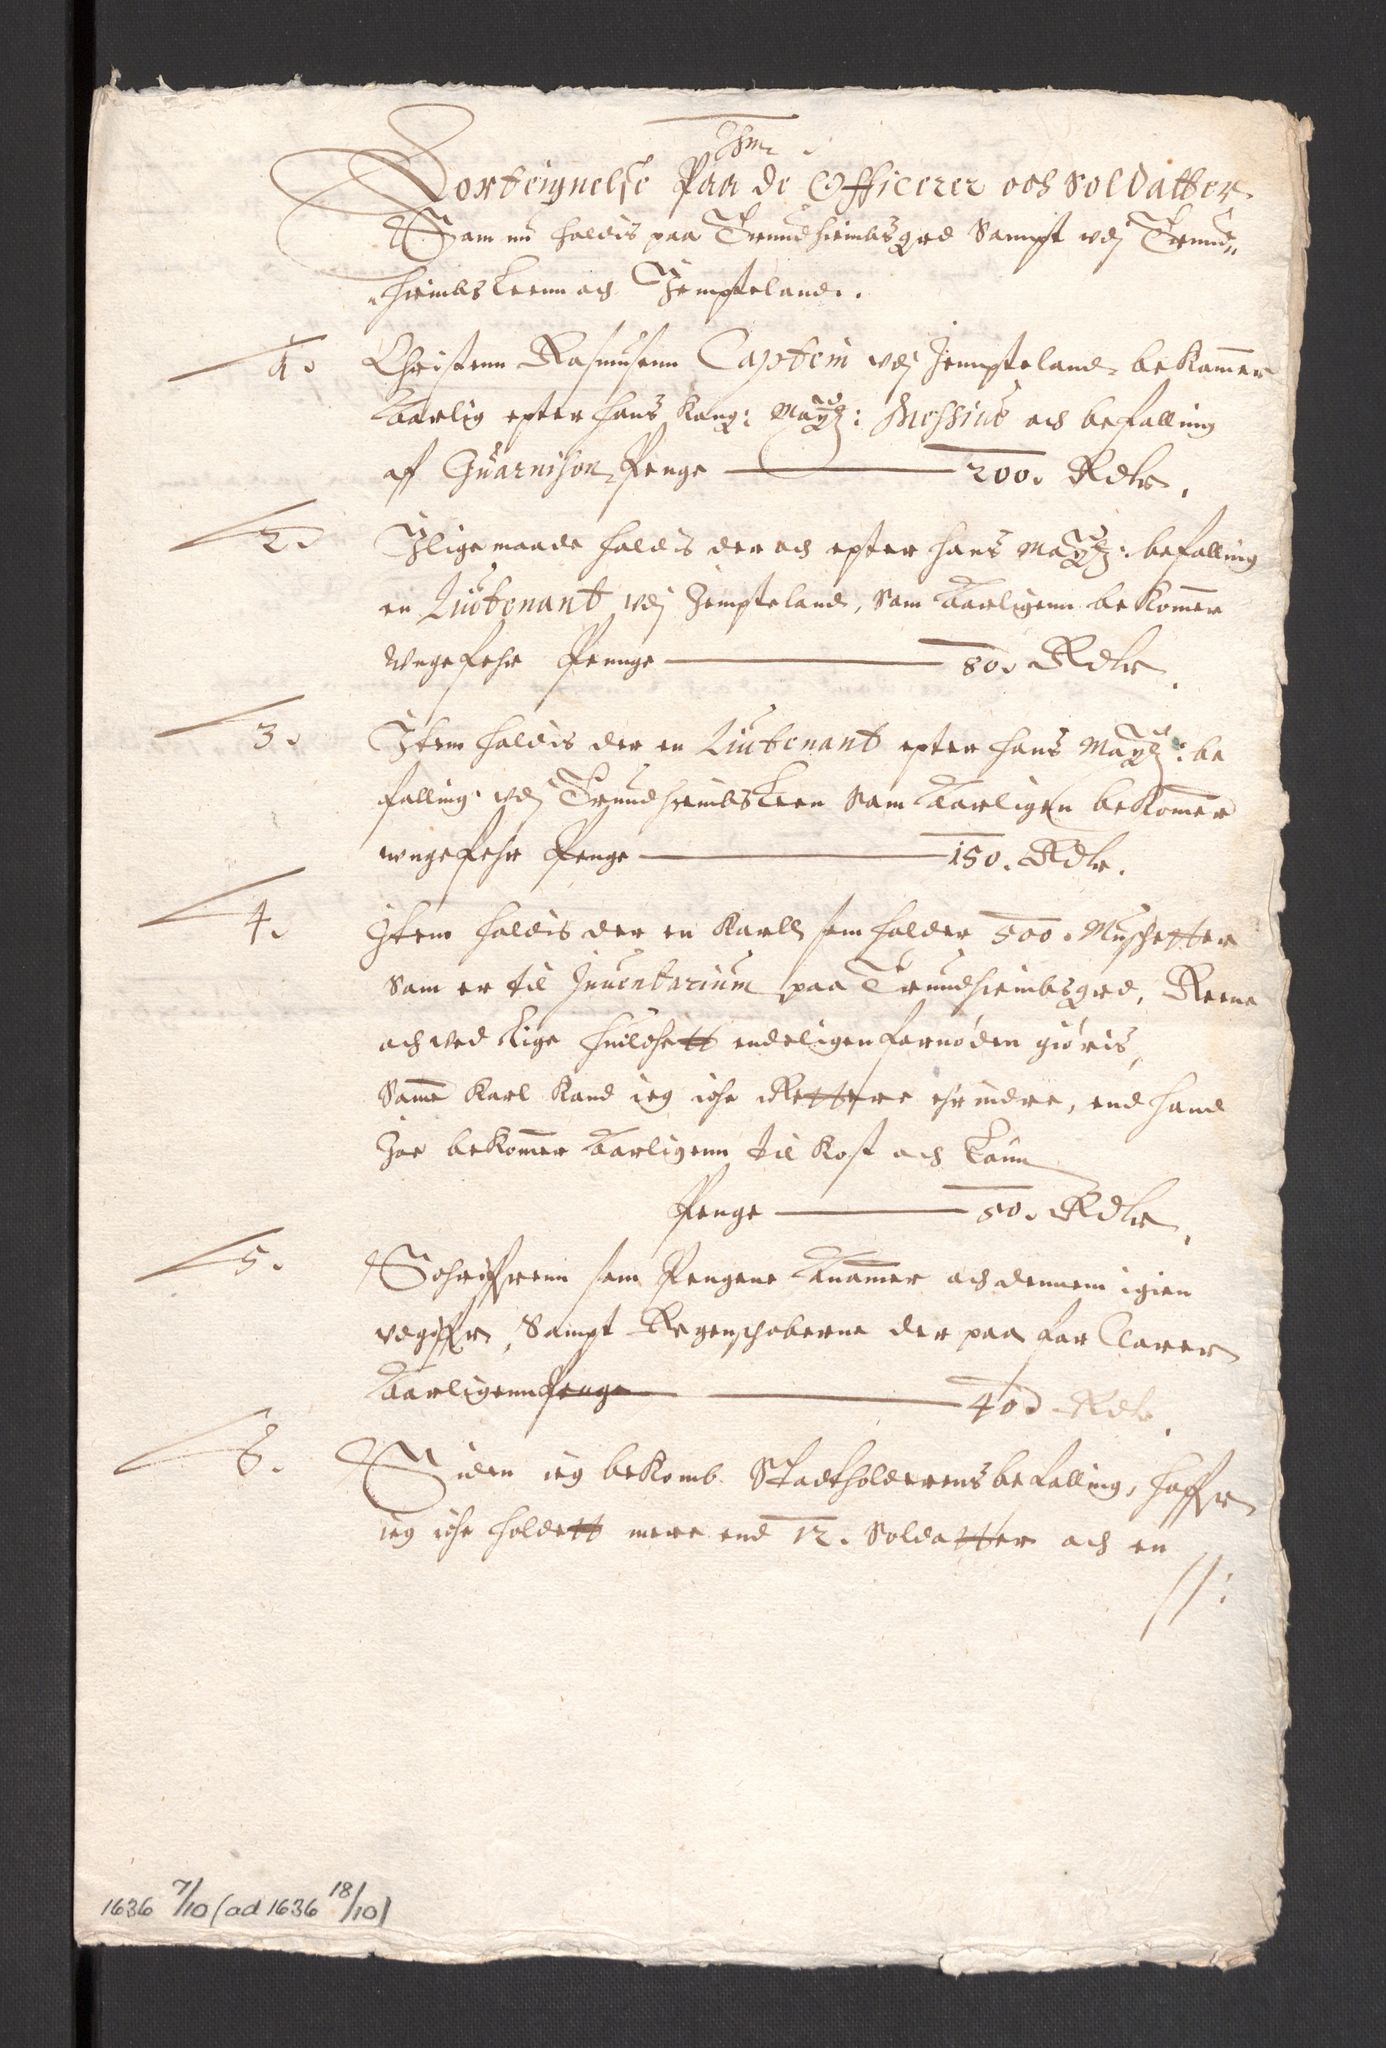 Ihm.
Forteignelse Paa de Officerer och Soldatter
Som nu holdis paa Trundhiembsgrd Sampt vdj Trund„
„hiembs Leen och Jempteland.
1. Christenn Rasmusenn Captein vdj Jempteland bekommer
Aarlig epter hans kong: Maytz: Messiue och befalling
af Guarnison Penge 200. Rdlr.
2. Ilige maade holdis der och epter hans Maytz: befalling
en Liutenant vdj Jempteland, Som Aarligenn bekommer
Vngefehr Pennge 80. Rdlr.
3. Item holdis der en Liutenant epter hans Maytz: be
falling vdj Trundhiembs Leen Som Aarligen bekommer
vngefehr Penge 150. Rdlr.
4. Item holdis der en Karll som holder 500. Muschetter
Som er til Inuentarium paa Trundhiembsgrd, Reene
och ved Lige huilchett endeligen fornøden giøris,
Samme Karl Kand ieg iche Rettere ehrindre, end hand
Joe bekommer Aarligenn til Kost och Lønn
Penge 50. Rdlr.
5. Schriffrenn som Pengene Annammer och dennem igien
vdgiffr, Sampt Regenschaberne der paa forClarer
Aarligenn Penge 40 Rdlr.
6. Siden ieg bekomb Stadtholderens befalling, haffr
ieg iche holdett mere end 12. Soldatter och en
//:
1636 7/10 (ad 1636 18/10)